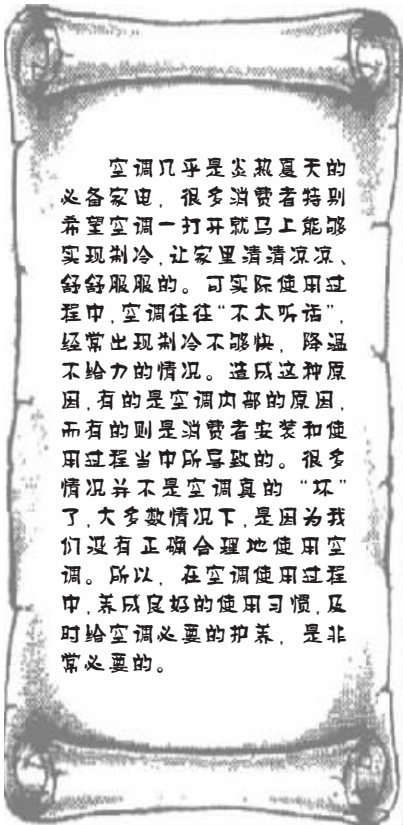 空调几乎是炎热夏天的
必备家电，很多消费者特别
希望空调一打开就马上能够
实现制冷，让家里清清凉凉、
舒舒服服的。可实际使用过
程中，空调往往“不太听话”，
经常出现制冷不够快，降温
不给力的情况。造成这种原
因，有的是空调内部的原因，
而有的则是消费者安装和使
用过程当中所导致的。很多
情况并不是空调真的“坏”
了，大多数情况下，是因为我
们没有正确合理地使用空
调。所以，在空调使用过程
中，养成良好的使用习惯，及
时给空调必要的护养，是非
常必要的。